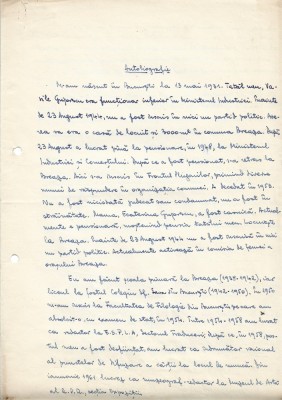 Autobiografie
M-am născut în București la 13 mai 1931. Tatăl meu, Va-
sile Gujorsu era funcționar inferior în Ministerul Industriei. Înainte
de 23 August 1944, nu a fost înscris în nici un partid politic. Ave-
rea sa era o casă de locuit și 3000 m² în comuna Breaza. După
23 August a lucrat pînă la pensionare, în 1948, la Ministerul
Industriei și Comerțului. După ce a fost pensionat, s-a retras la
Breaza. Aici s-a înscris în Frontul Plugarilor, primind diverse
munci de răspundere în organizația comunei. A decedat în 1958.
Nu a fost niciodată judecat sau condamnat, nu a fost în
străinătate. Mama, Ecaterina a fost casnică. Actual-
mente e pensionară, moștenind pensia tatălui meu, locuiește
la Breaza. Înainte de 23 August 1944 nu a fost înscrisă în nici
un partid politic. Actualmente activează în comisia de femei a
orașului Breaza.
Eu am făcut școala primară la Breaza (1938-1942), iar
liceul la fostul Colegiu Sf. Sava în București (1942-1950). În 1950
m-am înscris la Facultatea de Filologie din București pe care am
absolvit-o, cu examen de stat, în 1954. Între 1954-1958 am lucrat
ca redactor la E.S.P.L.A., Sectorul Traduceri. După ce, în 1958, pos-
tul meu a fost desființat, am lucrat ca îndrumător raional
al punctelor de difuzare a cărții la locul de muncă. Din
ianuarie 1961 lucrez ca muzeograf-redactor la Muzeul de Artă
al R.P.R., secția expoziții.